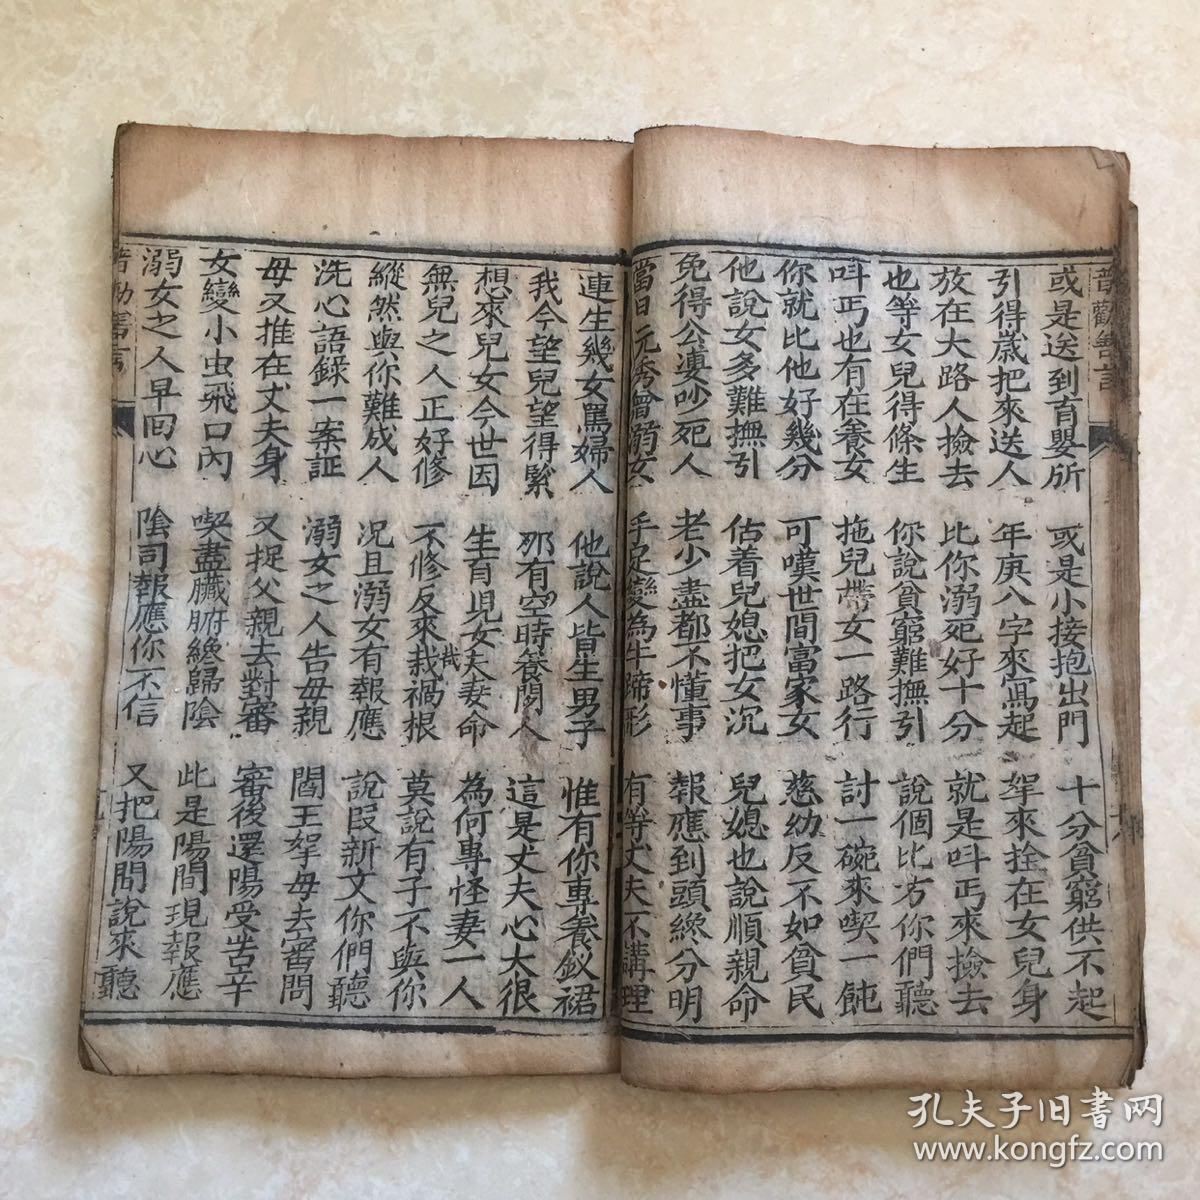 普勸善言
或是送到育嬰所 或是小接抱出門 十分貧窮供不起
引得歲把來送人 年庚八字來寫起 拏來拴在女兒身
放在大路人撿去 比你溺死好十分 就是叫丐來撿去
也等女兒得條生 你說貧窮難撫引 說個比方你們聽
叫丐也有在養女 拖兒帶女一路行 討一碗來喫一飩
你就比他好幾分 可嘆世間富家女 慈幼反不如貧民
他說女多難撫引 估着兒媳把女沉 兒媳也說順親命
免得公婆吵死人 老少盡都不懂事 報應到頭纔分明
當日元秀曾溺女 手足變為牛蹄形 有等丈夫不講理
連生幾女罵婦人 他說人皆生男子 惟有你專養釵裙
我今望兒望得緊 那有空時養閒人 這是丈夫心大很
想來兒女今世因 生育兒女夫妻命 為何專怪妻一人
無兒之人正好修 不修反來栽禍根 莫說有子不與你
縱然與你難成人 況且溺女有報應 說段新文你們聽
洗心語錄一案証 溺女之人告母親 閻王拏母去審問
母又推在丈夫身 又捉父親去對審 審後還陽受苦辛
女變小虫飛口內 喫盡臟腑纔歸陰 此是陽間現報應
溺女之人早回心 陰司報應你不信 又把陽間說來聽
孔夫子旧書网
www.kongfz.com